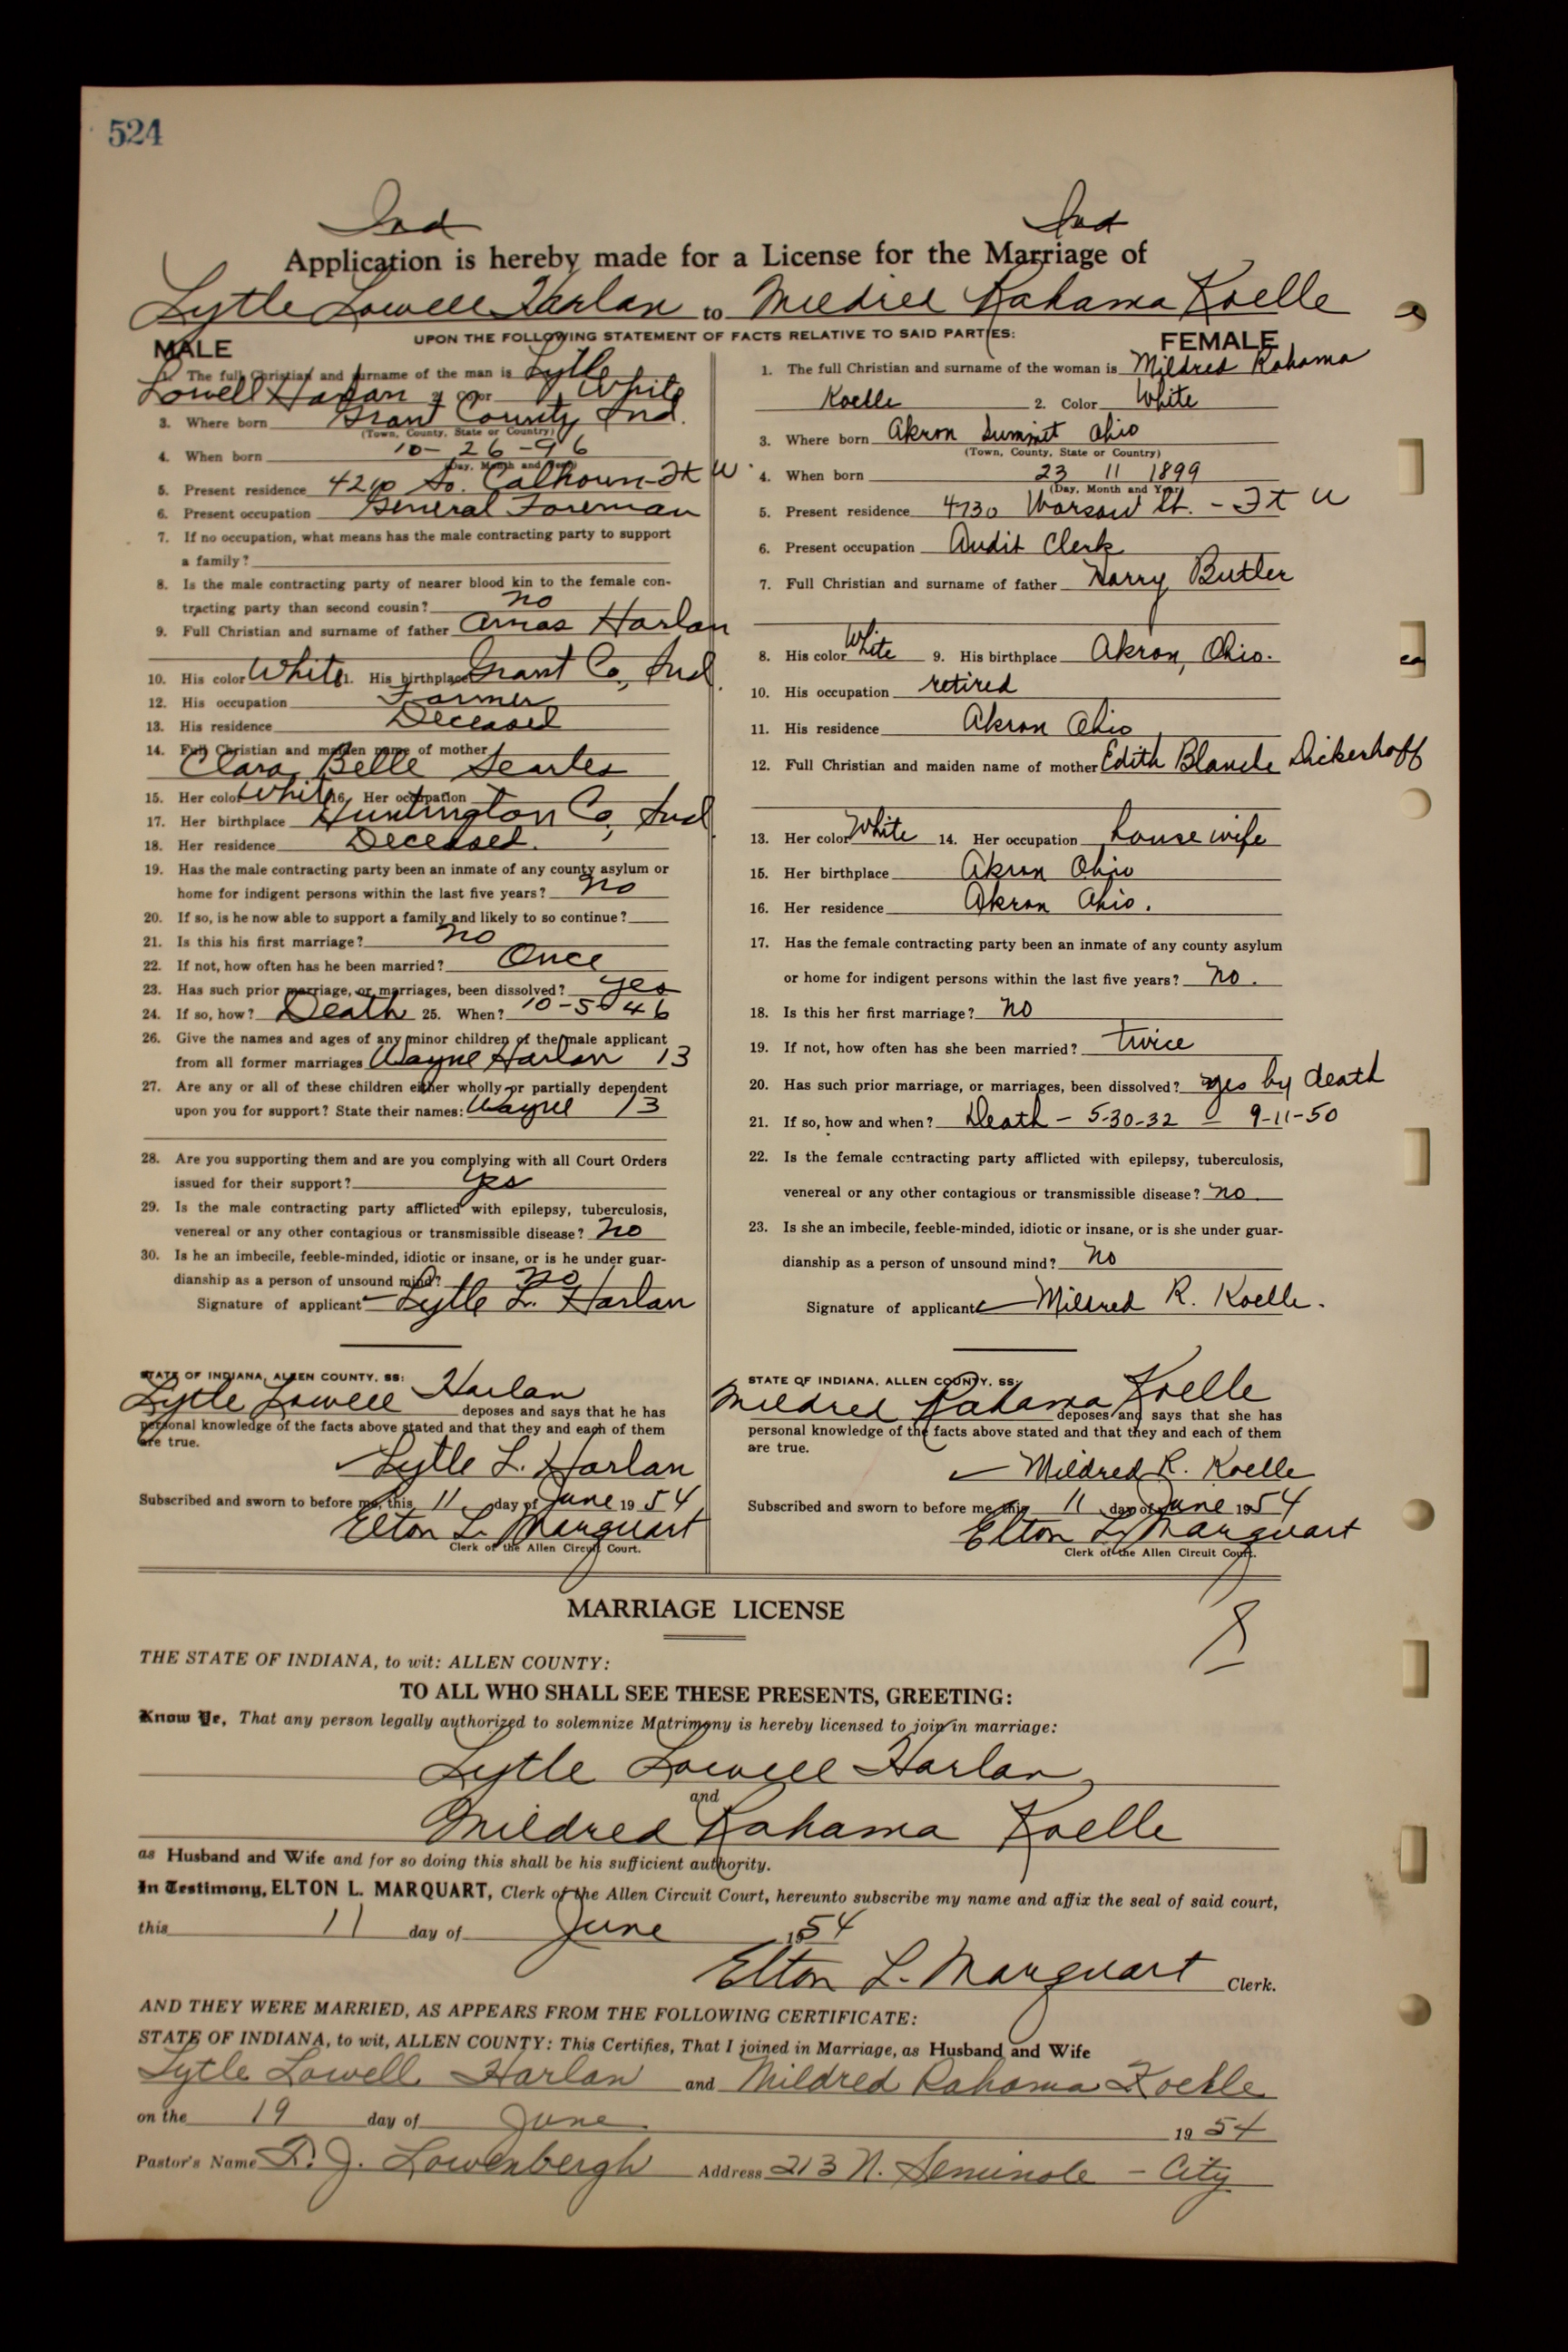 524
Ind Ind
Application is hereby made for a License for the Marriage of
Lytle Lowell Harlan to Mildred Rahama Koelle
UPON THE FOLLOWING STATEMENT OF FACTS RELATIVE TO SAID PARTIES:
MALE
1. The full Christian and surname of the man is Lytle
Lowell Harlan 2. Color White
3. Where born Grant County Ind.
(Town, County, State or Country)
4. When born 10-26-96
(Day, Month and Year)
5. Present residence 4210 So. Calhoun-Ft W
6. Present occupation General Foreman
7. If no occupation, what means has the male contracting party to support
a family?
8. Is the male contracting party of nearer blood kin to the female con-
tracting party than second cousin? no
9. Full Christian and surname of father Amas Harlan
10. His color White 11. His birthplace Grant Co, Ind.
12. His occupation Farmer
13. His residence Deceased
14. Full Christian and maiden name of mother
Clara Belle Searles
15. Her color White 16. Her occupation
17. Her birthplace Huntington Co, Ind
18. Her residence Deceased.
19. Has the male contracting party been an inmate of any county asylum or
home for indigent persons within the last five years? no
20. If so, is he now able to support a family and likely to so continue?
21. Is this his first marriage? no
22. If not, how often has he been married? Once
23. Has such prior marriage, or marriages, been dissolved? yes
24. If so, how? Death 25. When? 10-5-46
26. Give the names and ages of any minor children of the male applicant
from all former marriages Wayne Harlan 13
27. Are any or all of these children either wholly or partially dependent
upon you for support? State their names: Wayne 13
28. Are you supporting them and are you complying with all Court Orders
issued for their support? yes
29. Is the male contracting party afflicted with epilepsy, tuberculosis,
venereal or any other contagious or transmissible disease? no
30. Is he an imbecile, feeble-minded, idiotic or insane, or is he under guar-
dianship as a person of unsound mind? no
Signature of applicant Lytle L. Harlan
STATE OF INDIANA, ALLEN COUNTY, SS:
Lytle Lowell Harlan deposes and says that he has
personal knowledge of the facts above stated and that they and each of them
are true.
Lytle L. Harlan
Subscribed and sworn to before me, this 11 day of June 19 54
Elton L. Marquart
Clerk of the Allen Circuit Court.
FEMALE
1. The full Christian and surname of the woman is Mildred Rahama
Koelle 2. Color White
3. Where born Akron Summit Ohio
(Town, County, State or Country)
4. When born 23 11 1899
(Day, Month and Year)
5. Present residence 4730 Warsaw St. - Ft W
6. Present occupation Audit Clerk
7. Full Christian and surname of father Harry Butler
8. His color White 9. His birthplace Akron, Ohio.
10. His occupation retired
11. His residence Akron Ohio
12. Full Christian and maiden name of mother Edith Blanche Dickerhoff
13. Her color White 14. Her occupation housewife
15. Her birthplace Akron Ohio
16. Her residence Akron Ohio.
17. Has the female contracting party been an inmate of any county asylum
or home for indigent persons within the last five years? no.
18. Is this her first marriage? no
19. If not, how often has she been married? twice
20. Has such prior marriage, or marriages, been dissolved? yes by death
21. If so, how and when? Death - 5-30-32 - 9-11-50
22. Is the female contracting party afflicted with epilepsy, tuberculosis,
venereal or any other contagious or transmissible disease? no
23. Is she an imbecile, feeble-minded, idiotic or insane, or is she under guar-
dianship as a person of unsound mind? no
Signature of applicant Mildred R. Koelle.
STATE OF INDIANA, ALLEN COUNTY, SS:
Mildred Rahama Koelle deposes and says that she has
personal knowledge of the facts above stated and that they and each of them
are true.
Mildred R. Koelle
Subscribed and sworn to before me, this 11 day of June 1954
Elton L. Marquart
Clerk of the Allen Circuit Court.
MARRIAGE LICENSE
THE STATE OF INDIANA, to wit: ALLEN COUNTY:
TO ALL WHO SHALL SEE THESE PRESENTS, GREETING:
Know Ye, That any person legally authorized to solemnize Matrimony is hereby licensed to join in marriage:
Lytle Lowell Harlan
and
Mildred Rahama Koelle
as Husband and Wife and for so doing this shall be his sufficient authority.
In Testimony, ELTON L. MARQUART, Clerk of the Allen Circuit Court, hereunto subscribe my name and affix the seal of said court,
this 11 day of June 1954
Elton L. Marquart Clerk.
AND THEY WERE MARRIED, AS APPEARS FROM THE FOLLOWING CERTIFICATE:
STATE OF INDIANA, to wit, ALLEN COUNTY: This Certifies, That I joined in Marriage, as Husband and Wife
Lytle Lowell Harlan and Mildred Rahama Koelle
on the 19 day of June 19 54
Pastor's Name D. J. Lowenbergh Address 213 N. Seminole - City